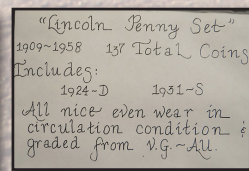 "Lincoln Penny Set"
1909~1958 137 Total Coins
Includes:
1924~D 1931~S
All nice even wear in
circulation condition &
graded from V.G.~AU.